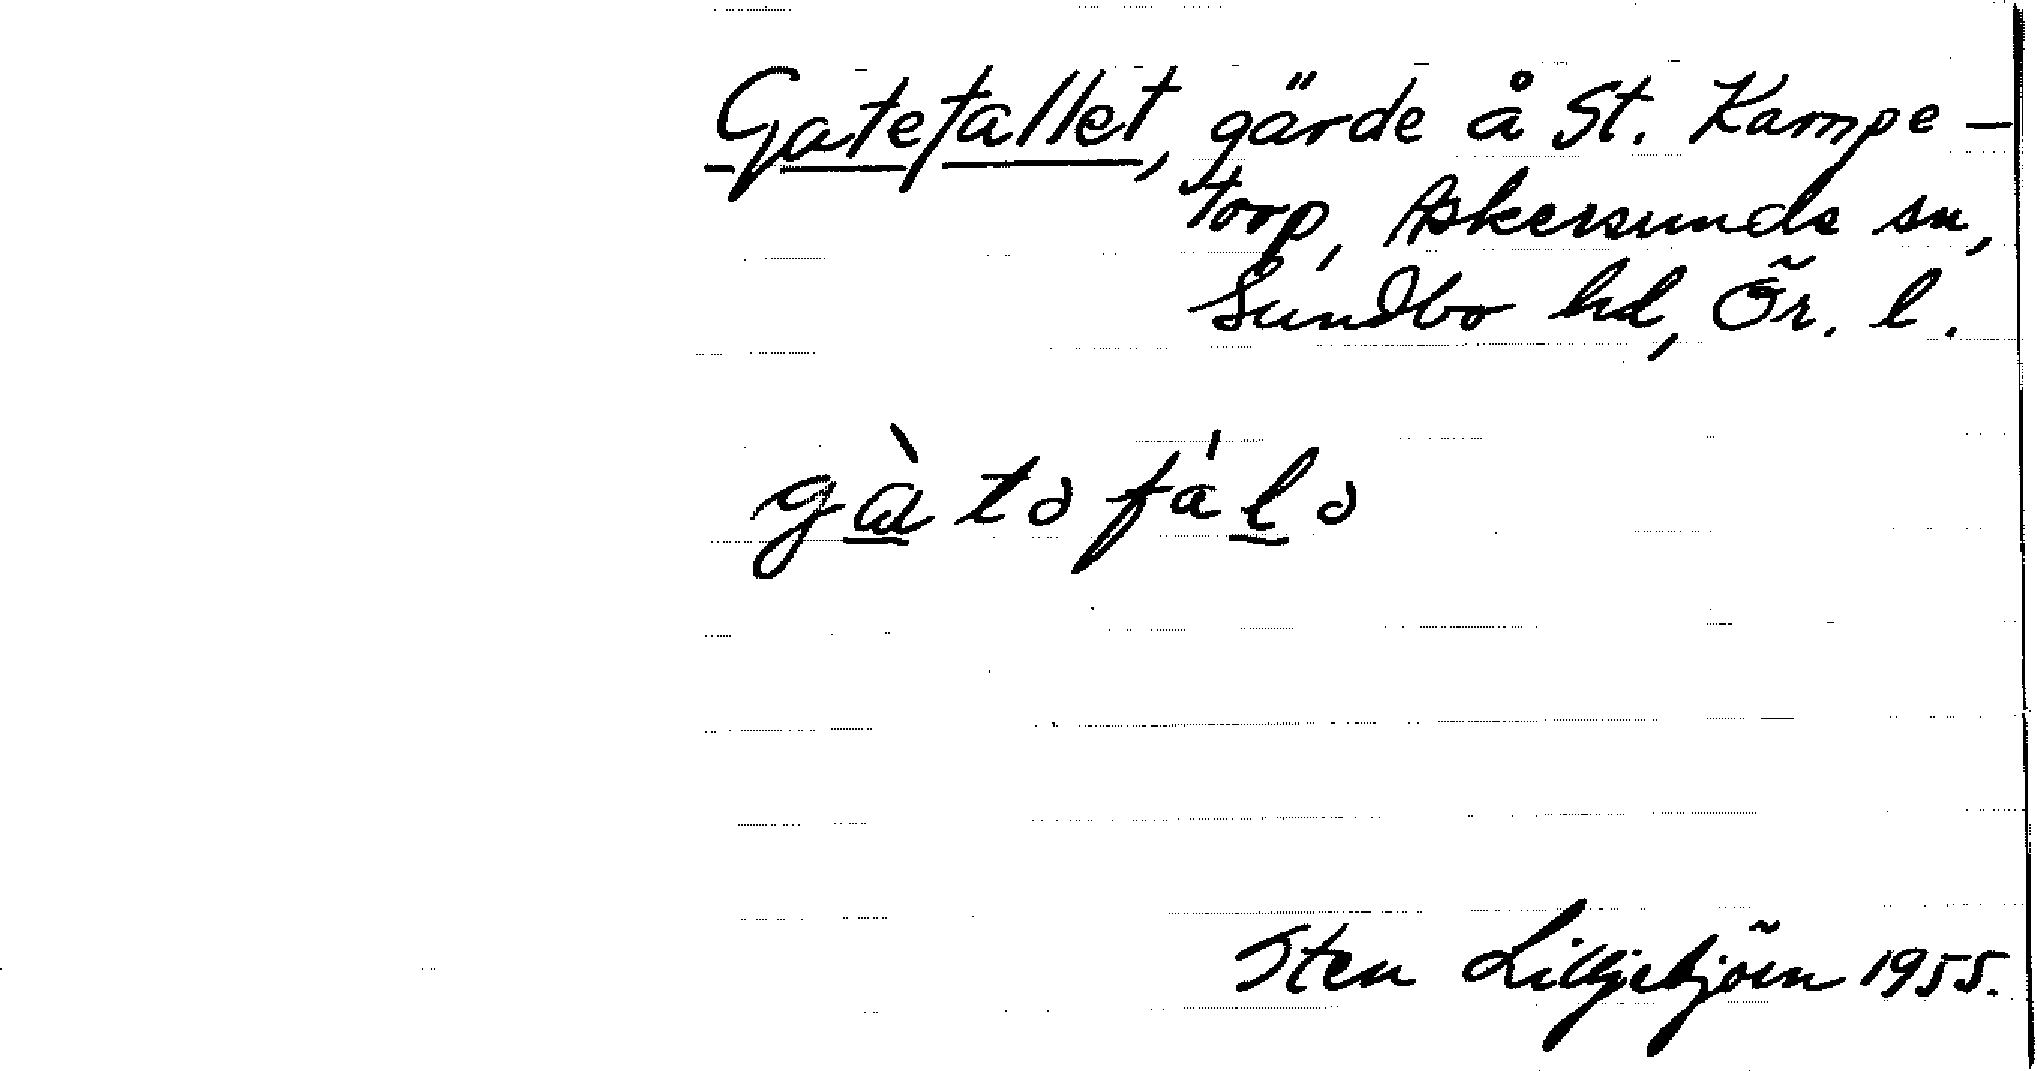 Gatefallet, gärde å St. Kampe-
torp, Askersunds sn,
Sundbo hd, Ör. l.
gàtəfálə
Sten Lilljebjörn 1955.